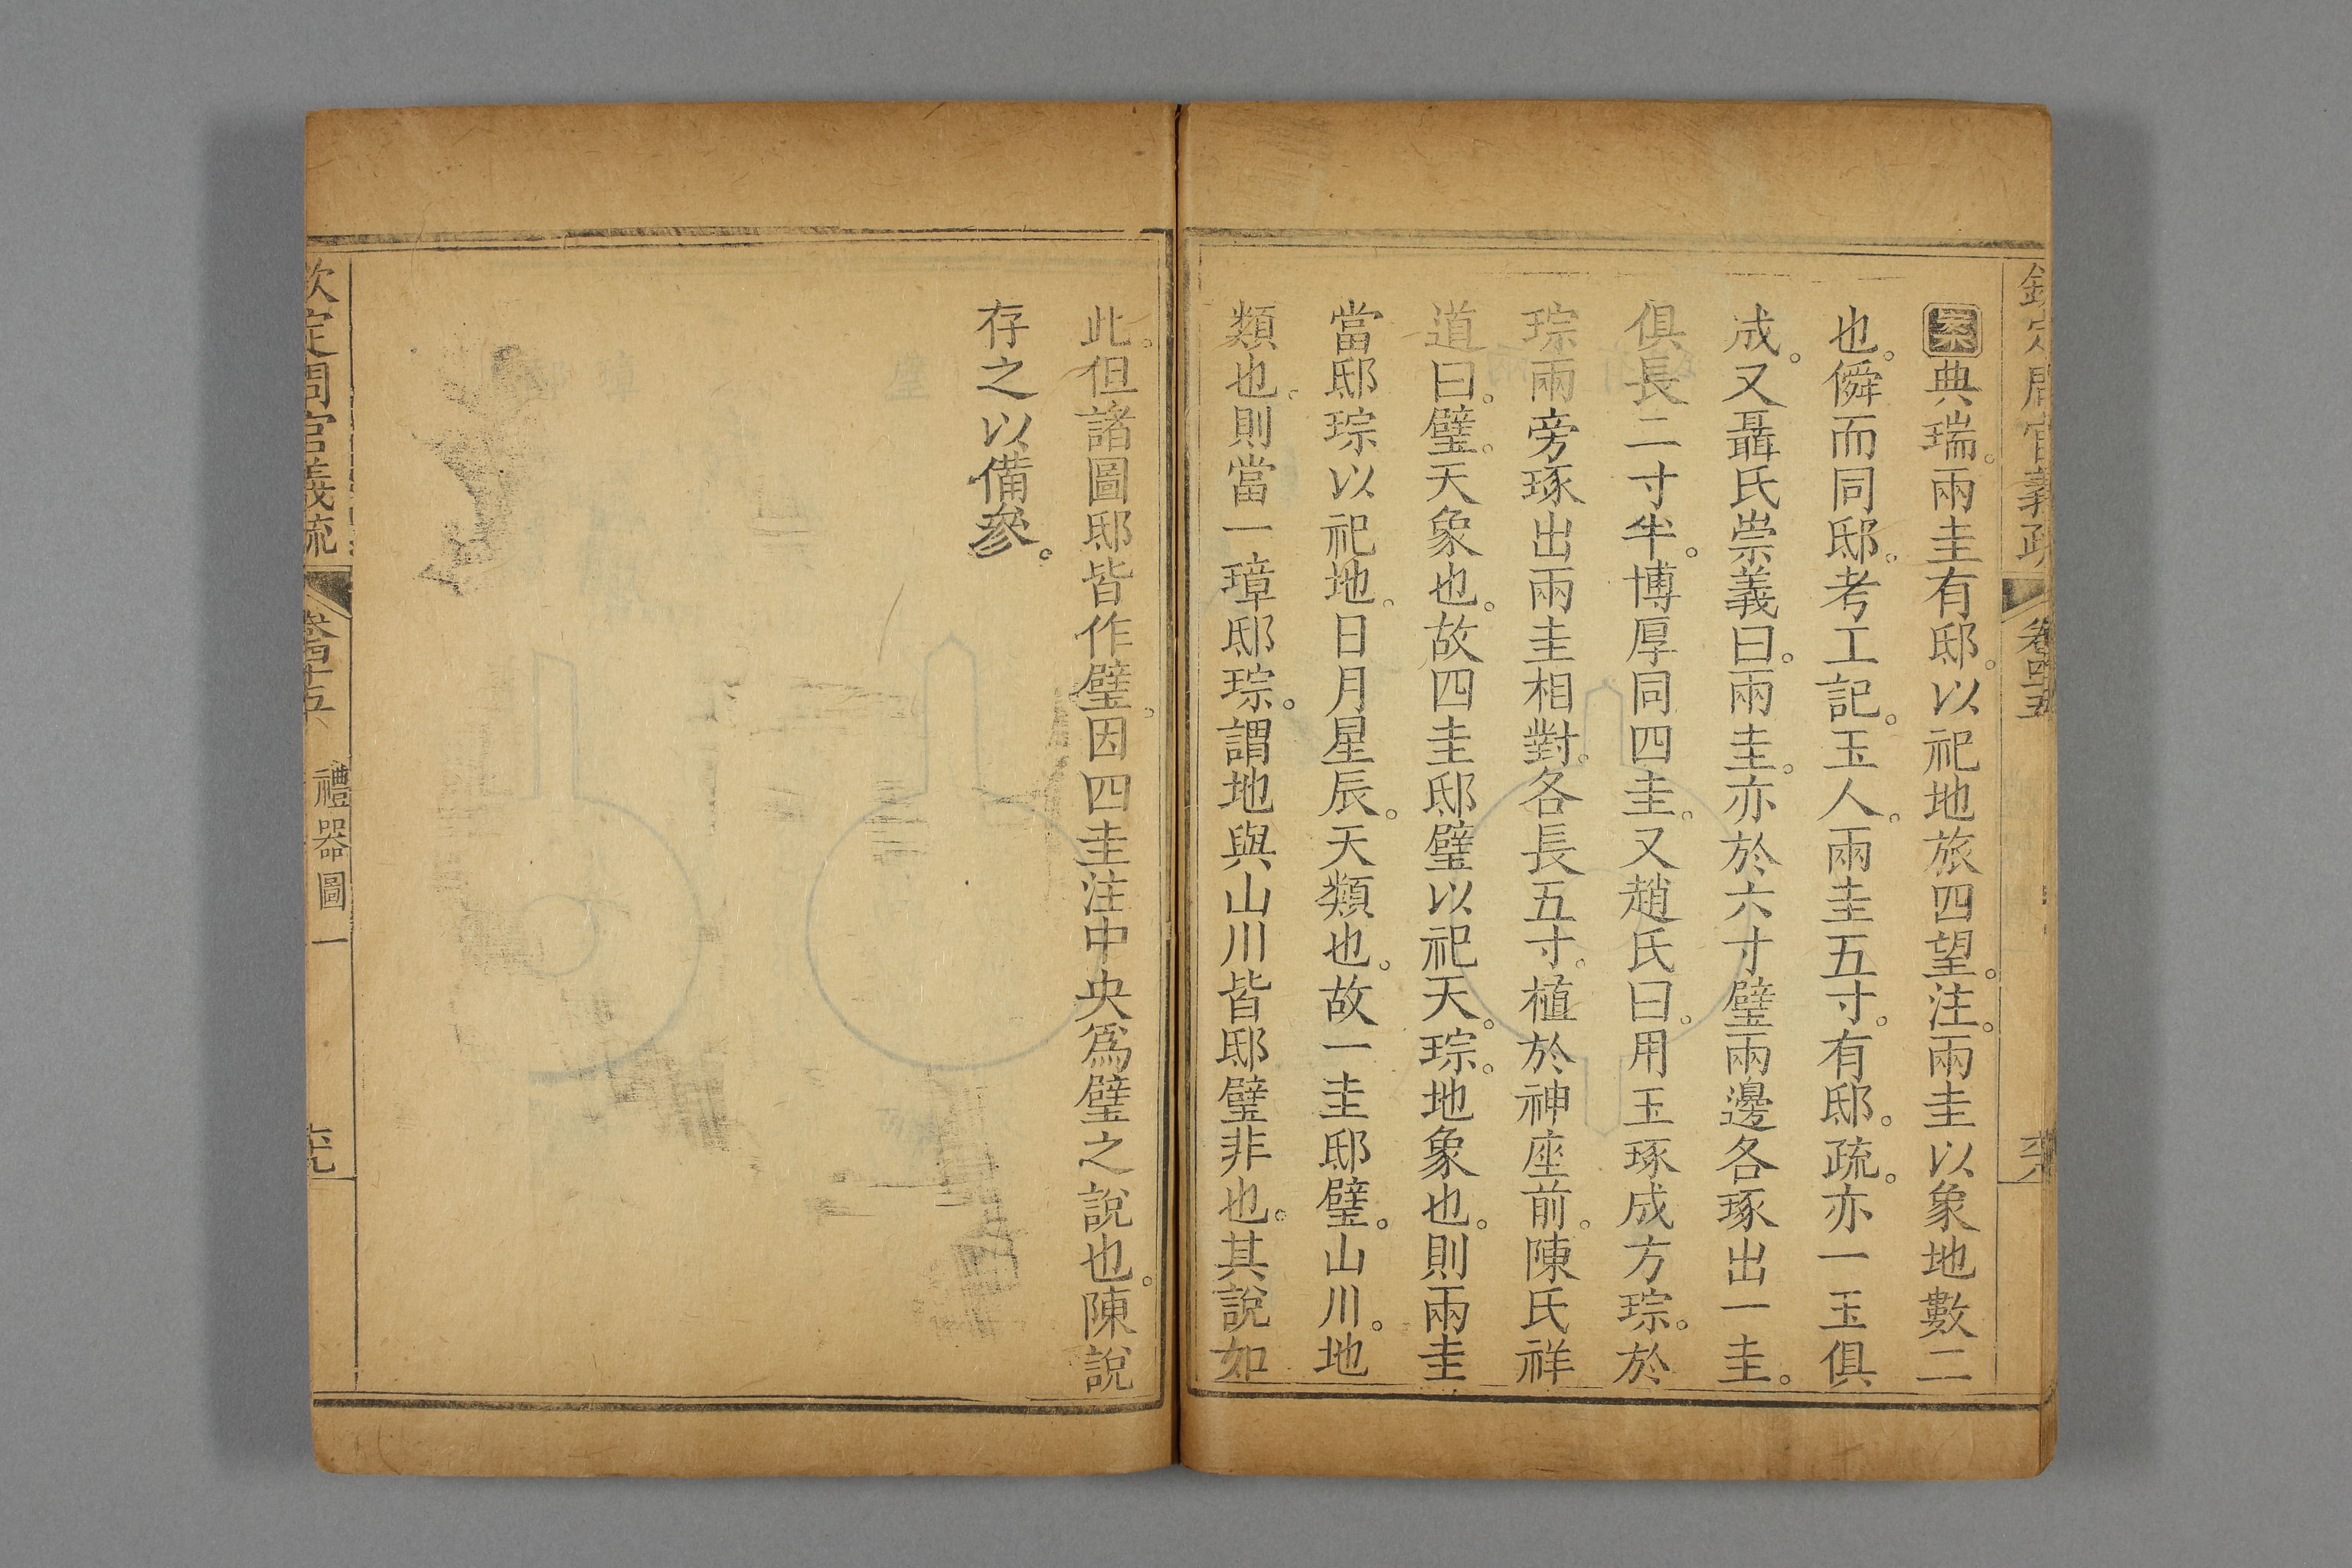 欽定周官義疏 卷四十五
案典瑞。兩圭有邸。以祀地旅四望。注。兩圭以象地數二
也。僢而同邸。考工記。玉人。兩圭五寸。有邸。疏。亦一玉俱
成。又聶氏崇義曰。兩圭。亦於六寸璧兩邊各琢出一圭。
俱長二寸半。博厚同四圭。又趙氏曰。用玉琢成方琮。於
琮兩旁琢出兩圭相對。各長五寸。植於神座前。陳氏祥
道曰。璧。天象也。故四圭邸璧以祀天。琮。地象也。則兩圭
當邸琮以祀地。日月星辰。天類也。故一圭邸璧。山川。地
類也。則當一璋邸琮。謂地與山川皆邸璧非也。其說如
此。但諸圖邸皆作璧。因四圭注中央爲璧之說也。陳說
存之以備參。
欽定周官義疏 卷四十五 禮器圖一